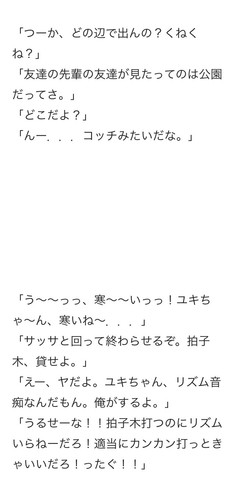 「つーか、どの辺で出んの？くねく
ね？」
「友達の先輩の友達が見たってのは公園
だってさ。」
「どこだよ？」
「んー．．．コッチみたいだな。」
「う〜〜っっ、寒〜〜いっっ！ユキち
ゃ〜ん、寒いね〜．．．」
「サッサと回って終わらせるぞ。拍子
木、貸せよ。」
「えー、ヤだよ。ユキちゃん、リズム音
痴なんだもん。俺がするよ。」
「うるせーな！！拍子木打つのにリズム
いらねーだろ！適当にカンカン打っとき
ゃいいだろ！ったぐ！！」